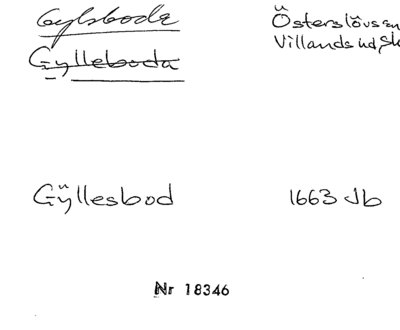 Gylsboda Österslövs
Gylleboda Villands hd, Sk
Gÿllesbod 1663 Jb
Nr 18346